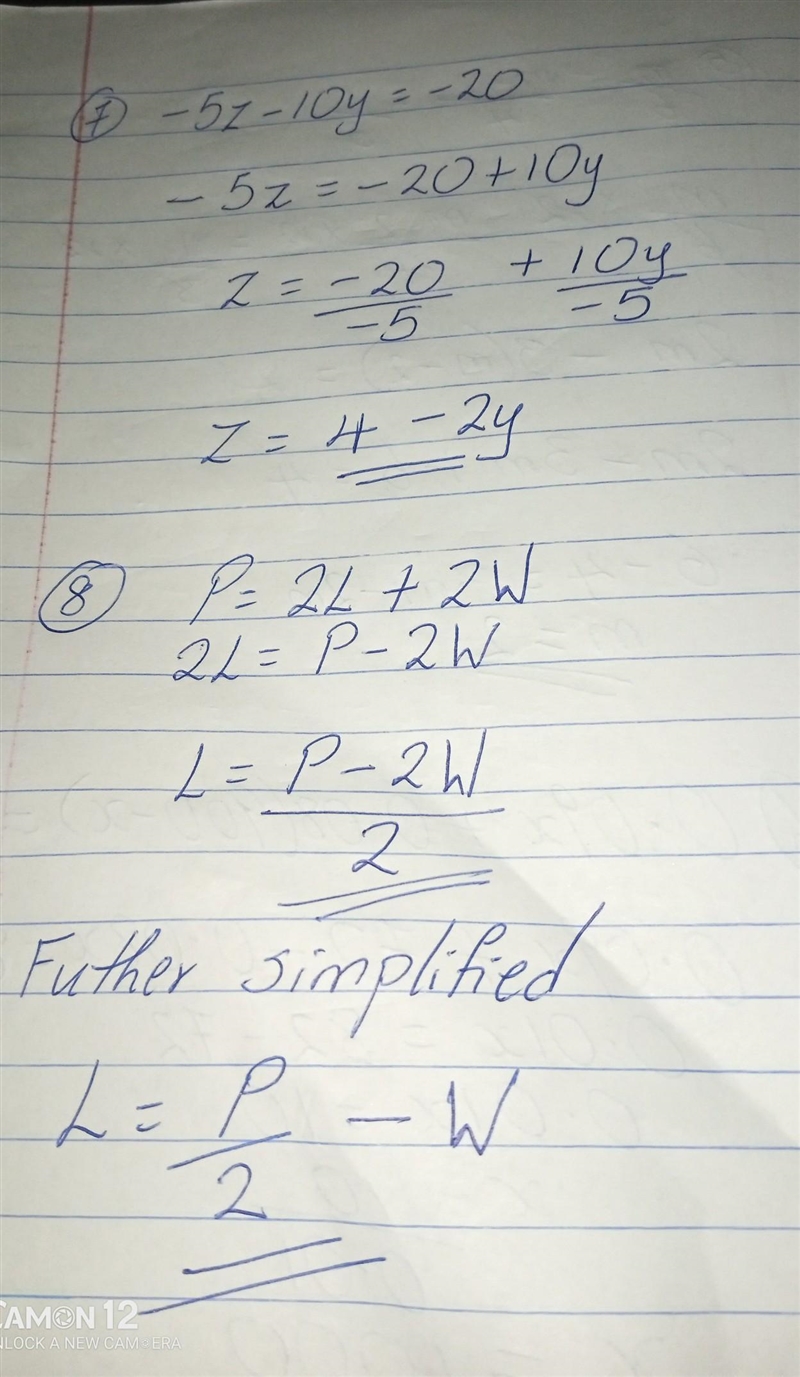 ⑦ -5z - 10y = -20
-5z = -20 + 10y
z = -20/-5 + 10y/-5
z = 4 - 2y
⑧ P = 2L + 2W
2L = P - 2W
L = P - 2W
2
Futher simplified
L = P/2 - W
CAMON 12
NLOCK A NEW CAM ERA